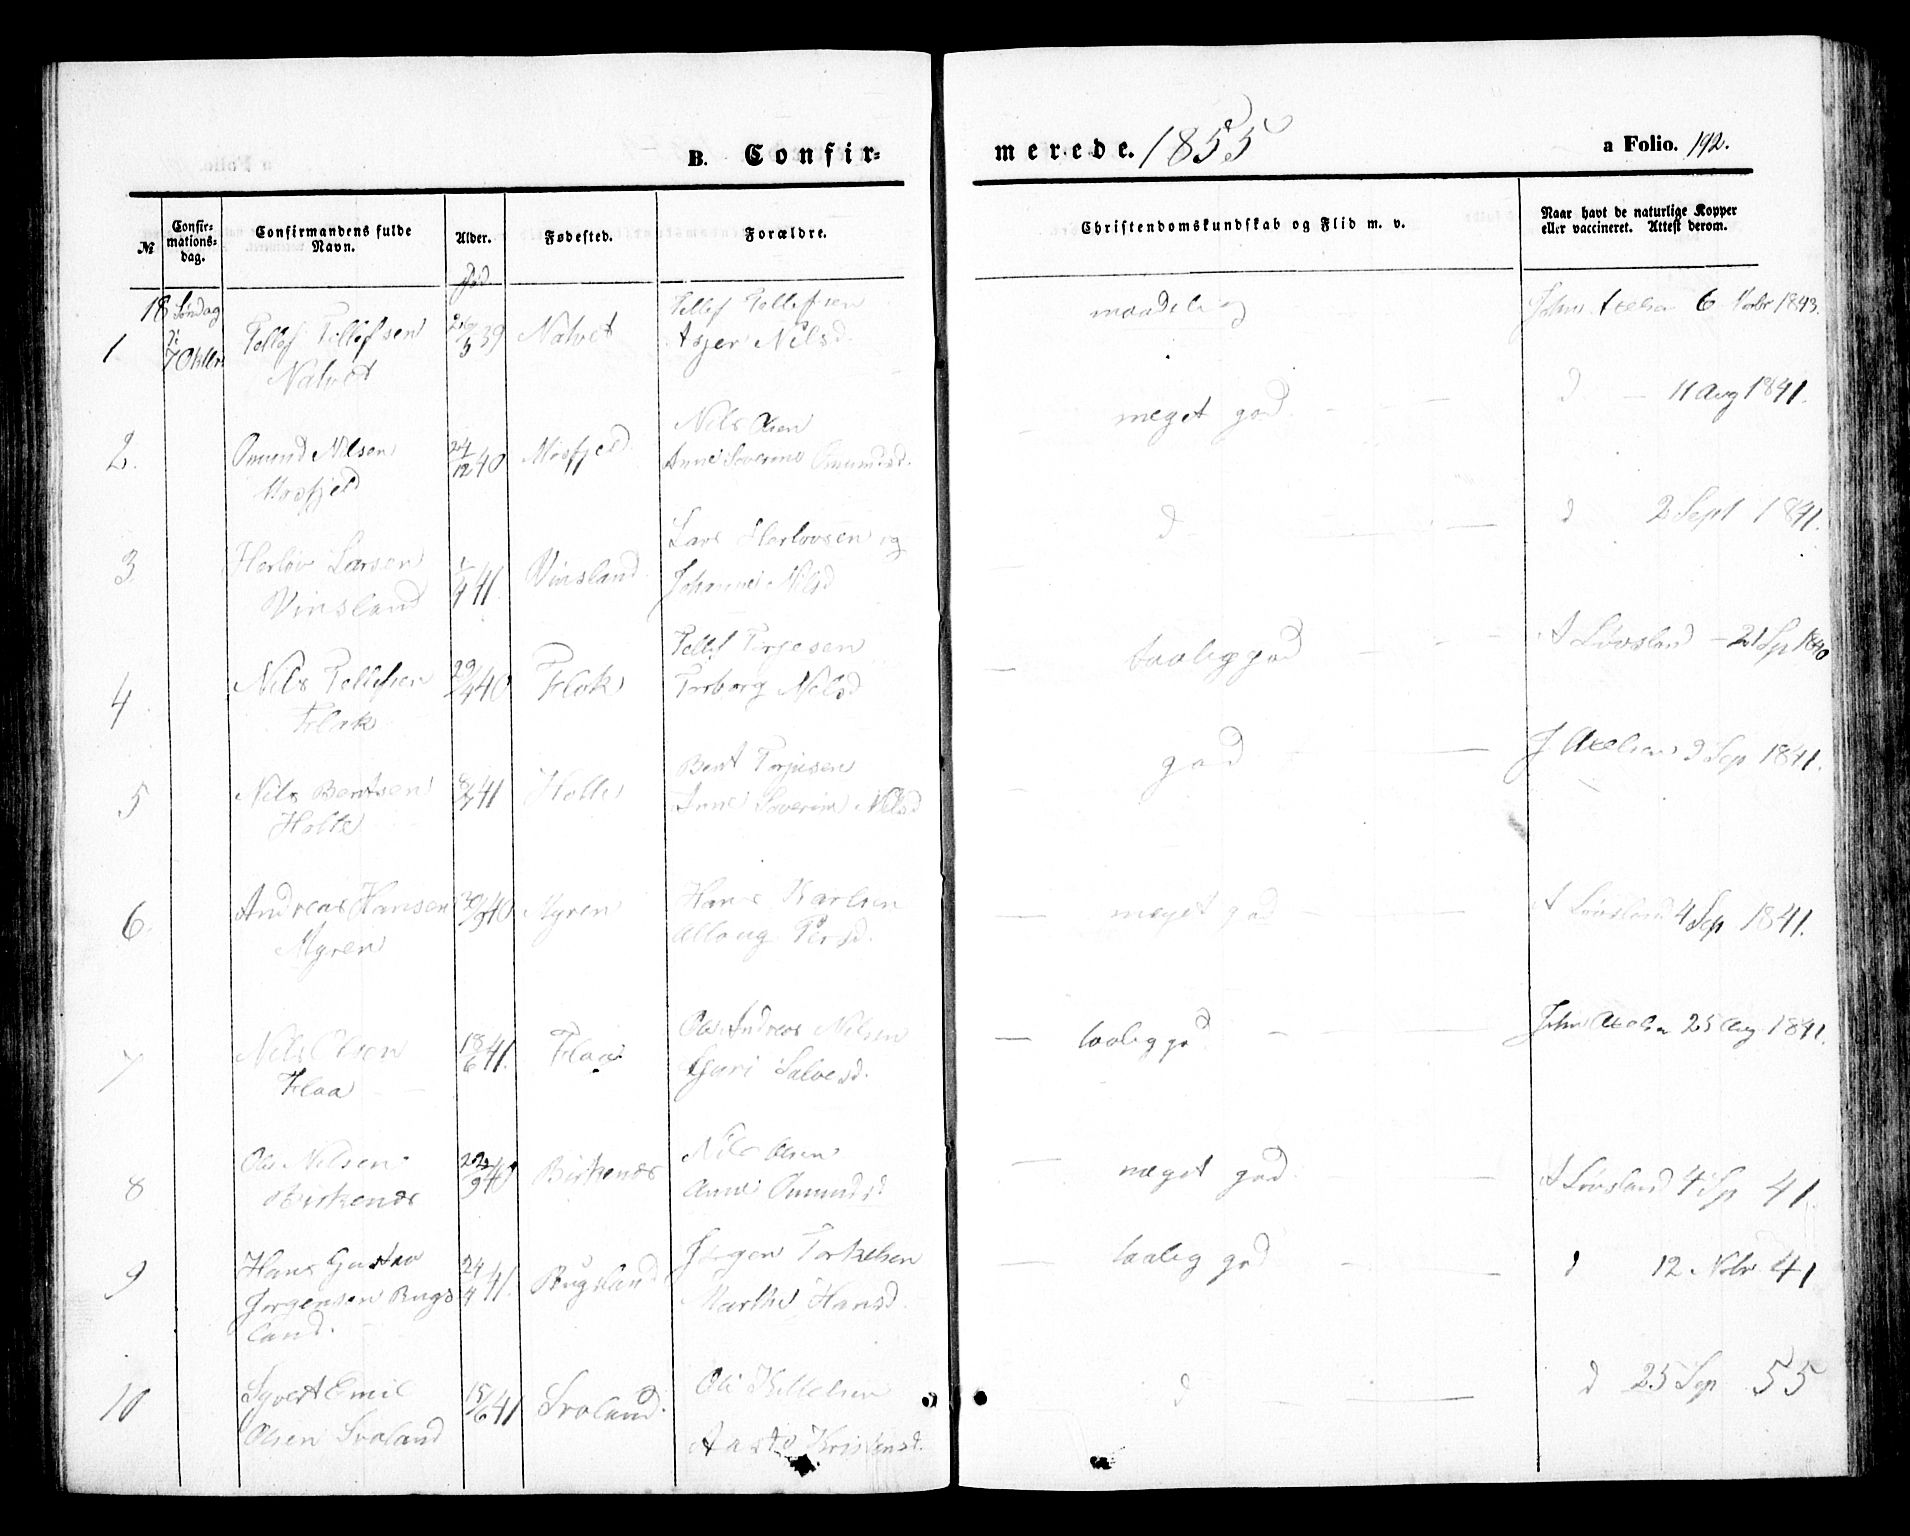 B. Confir-
merede. 1855
a Folio. 192.
№
Confir-
mations-
dag.
Confirmandens fulde
Navn.
Alder.
Fødested.
Forældre.
Christendomskundskab og Flid m. v.
Naar havt de naturlige Kopper
eller vaccineret. Attest derom.
Fød
18 Søndag
7 Oktbr
1
Tellef Tellefsen
Natvet
26/5 39
Natvet
Tellef Tellefsen
Asjer Nilsd.
maadelig
6 Novbr 1843.
2.
Omund Nilsen
Mosfjeld
24/12 40
Mosfjeld
Nils Olsen
Anne Severine Omundsd.
meget god
d — 11 Aug 1841.
3
Herlov Larsen
Vinsland
1/4 41.
Vinsland
Lars Herlovsen og
Johanne Nilsd
d
d 2 Sept 1841.
4
Nils Tellefsen
Flak
40
Flak
Tellef Terjesen
Torborg Nilsd
taalig god
A Løvsland — 21 Sp 1840
5
Nils Bentsen
Holte
41
Holte
Bent Terjesen
Anne Severine Nilsd
god
J Axelsen 3 Sep 1841.
6.
Andreas Hansen
Myren
30/9 40
Myren
Hans Karlsen
Persd.
meget god
A Løvsland 4 Sep 1841.
7
Nils Olsen
Flaa
18/6 41.
Flaa
Ole Andreas Nilsen
Guri Salvesd.
taalig god
John Axelsen 25 Aug 1841.
8
Ole Nilsen
Birkenes
22/9 40
Birkenes
Nils Olsen
Anne Omundsd
meget god
A Løvsland 4 Sp 41.
9
Hans Gustav
Jørgensen Bugs
land.
24/4 41.
Bugsland
Jørgen Torkelsen
Marthe Hansd.
taalig god
d 12 Nobr 41
10
Syvert Emil
Olsen Svaland
15/6 41
Svaland.
Ole Kittelsen
Aaste Kristensd.
d
d 25 Sep 55